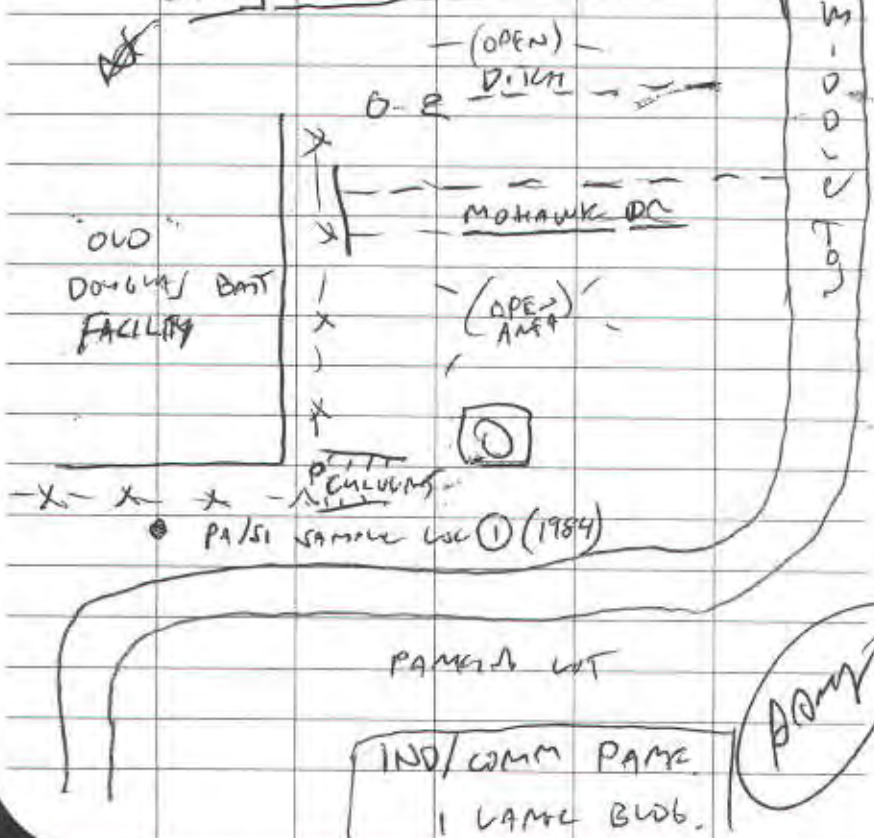 (OPEN)
DITCH
MOHAWK DR
"OLD"
DOUGLAS BATT
FACILITY
(OPEN
AREA)
1
CULVERTS
PA/SI SAMPLE LOC ① (1984)
PARKING LOT
IND/COMM PARK
1 LARGE BLDG.